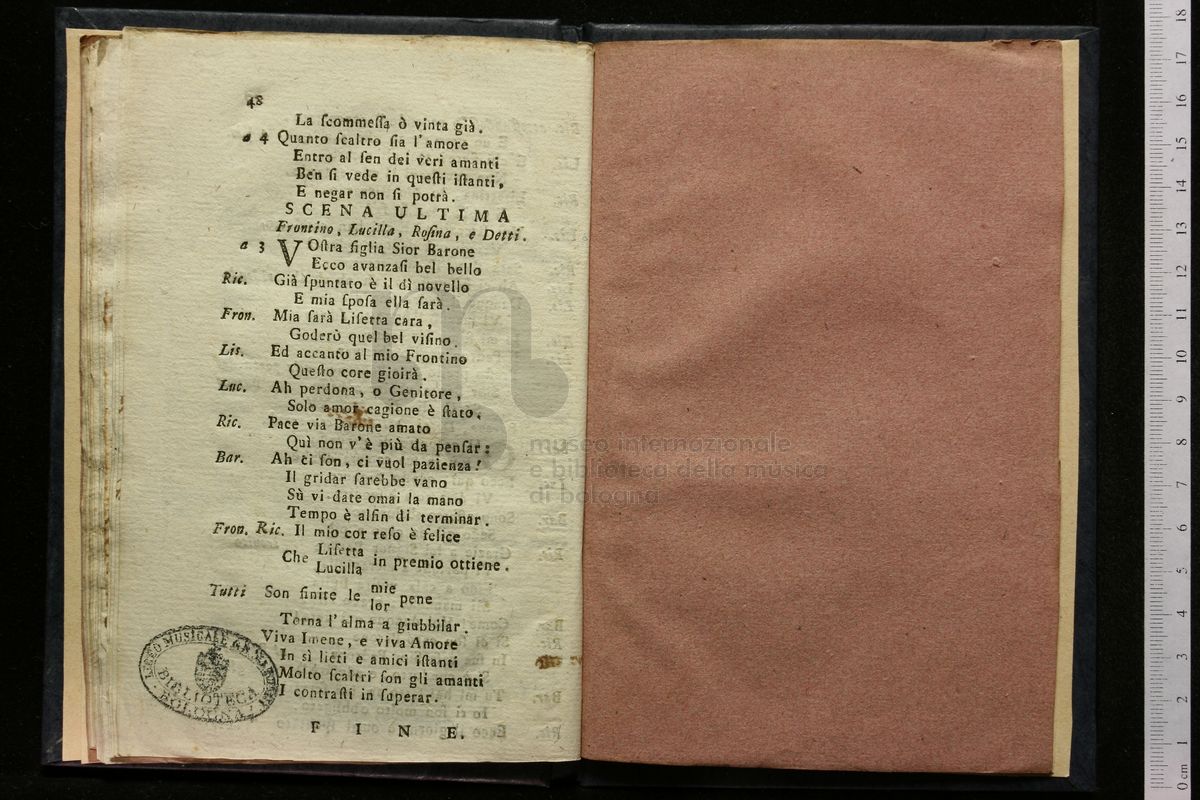 48
La ſcommeſſa ò vinta già.
a 4 Quanto ſcaltro ſia l'amore
Entro al ſen dei veri amanti
Ben ſi vede in queſti iſtanti,
E negar non ſi potrà.
SCENA ULTIMA
Frontino, Lucilla, Roſina, e Detti.
a 3 VOſtra figlia Sior Barone
Ecco avanzaſi bel bello
Ric. Già ſpuntato è il dì novello
E mia ſpoſa ella ſarà.
Fron. Mia ſarà Liſetta cara,
Goderò quel bel viſino.
Lis. Ed accanto al mio Frontino
Queſto core gioirà.
Luc. Ah perdona, o Genitore,
Solo amor cagione è ſtato.
Ric. Pace via Barone amato
Quì non v'è più da penſar:
Bar. Ah ci ſon, ci vuol pazienza!
Il gridar ſarebbe vano
Sù vi date omai la mano
Tempo è alfin di terminar.
Fron. Ric. Il mio cor reſo è felice
Che Liſetta in premio ottiene.
Lucilla
Tutti Son finite le mie pene
lor
Torna l'alma a giubbilar.
Viva Imene, e viva Amore
In sì lieti e amici iſtanti
Molto ſcaltri ſon gli amanti
I contraſti in ſuperar.
FINE.
LICEO MUSICALE
BIBLIOTECA
BOLOGNA
museo internazionale
e biblioteca della musica
di bologna
0 cm 1 2 3 4 5 6 7 8 9 10 11 12 13 14 15 16 17 18